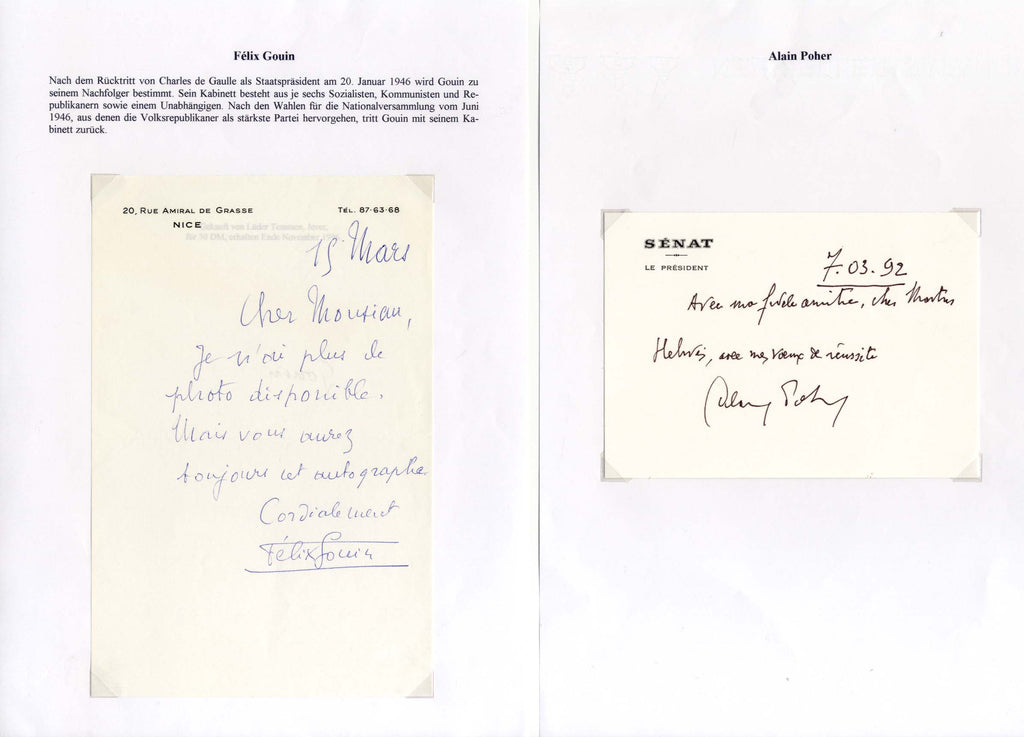 Félix Gouin
Nach dem Rücktritt von Charles de Gaulle als Staatspräsident am 20. Januar 1946 wird Gouin zu
seinem Nachfolger bestimmt. Sein Kabinett besteht aus je sechs Sozialisten, Kommunisten und Re-
publikanern sowie einem Unabhängigen. Nach den Wahlen für die Nationalversammlung vom Juni
1946, aus denen die Volksrepublikaner als stärkste Partei hervorgehen, tritt Gouin mit seinem Ka-
binett zurück.
20, RUE AMIRAL DE GRASSE TÉL. 87-63-68
NICE
15 Mars
Cher Monsieur,
Je n'ai plus de
photo disponible.
Mais vous aurez
toujours cet autographe.
Cordialement
Félix Gouin
Alain Poher
SÉNAT
LE PRÉSIDENT
7.03.92
Avec ma fidèle amitié, cher
avec mes vœux de réussite
Alain Poher